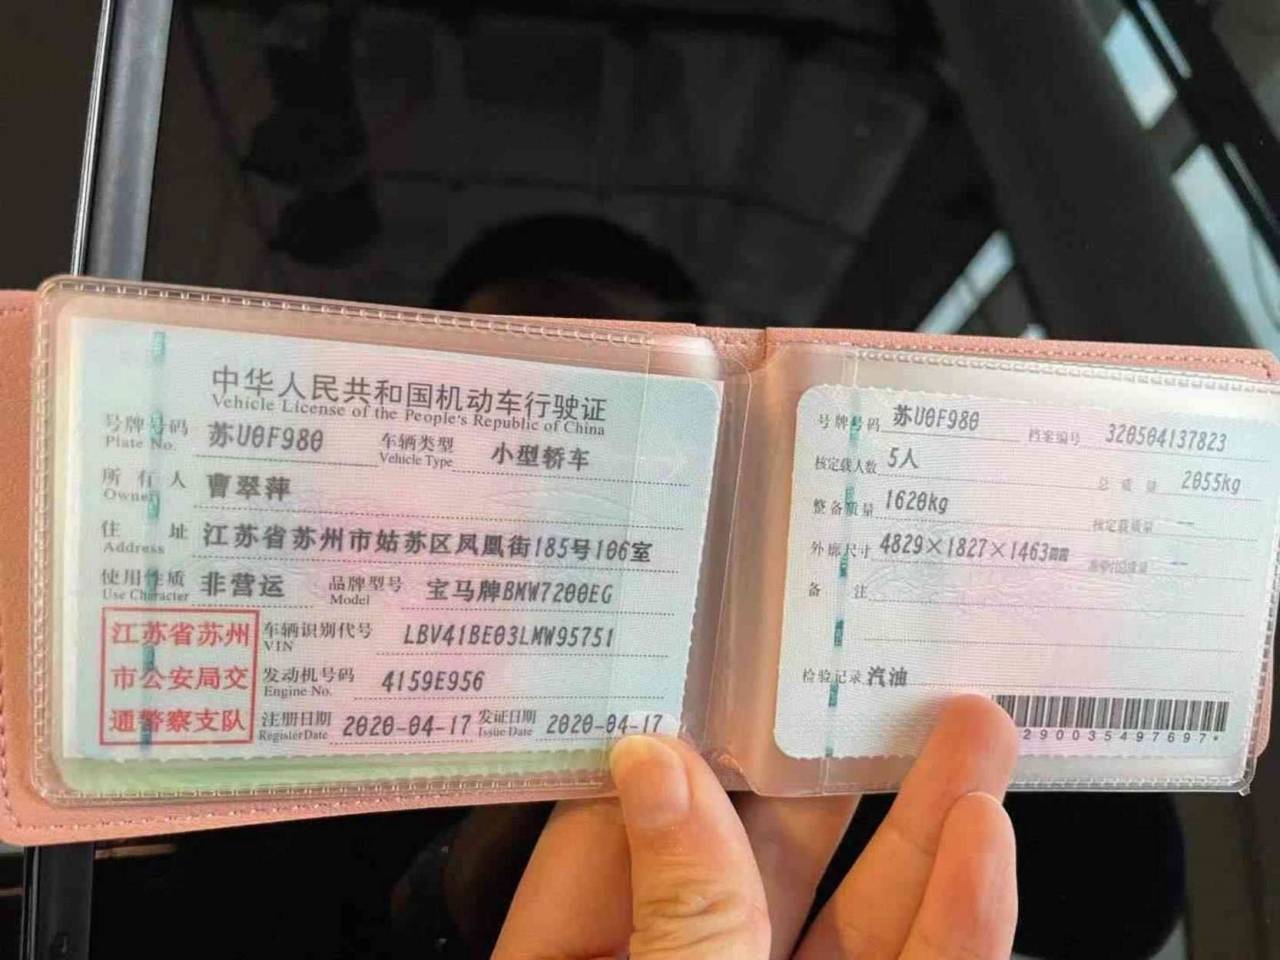 中华人民共和国机动车行驶证
Vehicle License of the People's Republic of China
号牌号码 苏U0F980 车辆类型 小型轿车
Plate No. Vehicle Type
所有人 曹翠萍
Owner
住址 江苏省苏州市姑苏区凤凰街185号106室
Address
使用性质 非营运 品牌型号 宝马牌BMW7200EG
Use Character Model
江苏省苏州
市公安局交
通警察支队
车辆识别代号 LBV41BE03LMW95751
VIN
发动机号码 4159E956
Engine No.
注册日期 2020-04-17 发证日期 2020-04-17
Register Date Issue Date
号牌号码 苏U0F980 档案编号 320504137823
核定载人数 5人 总质量 2055kg
整备质量 1620kg 核定载质量 --
外廓尺寸 4829×1827×1463mm 准牵引总质量 --
备注
检验记录 汽油
2900354976 97*